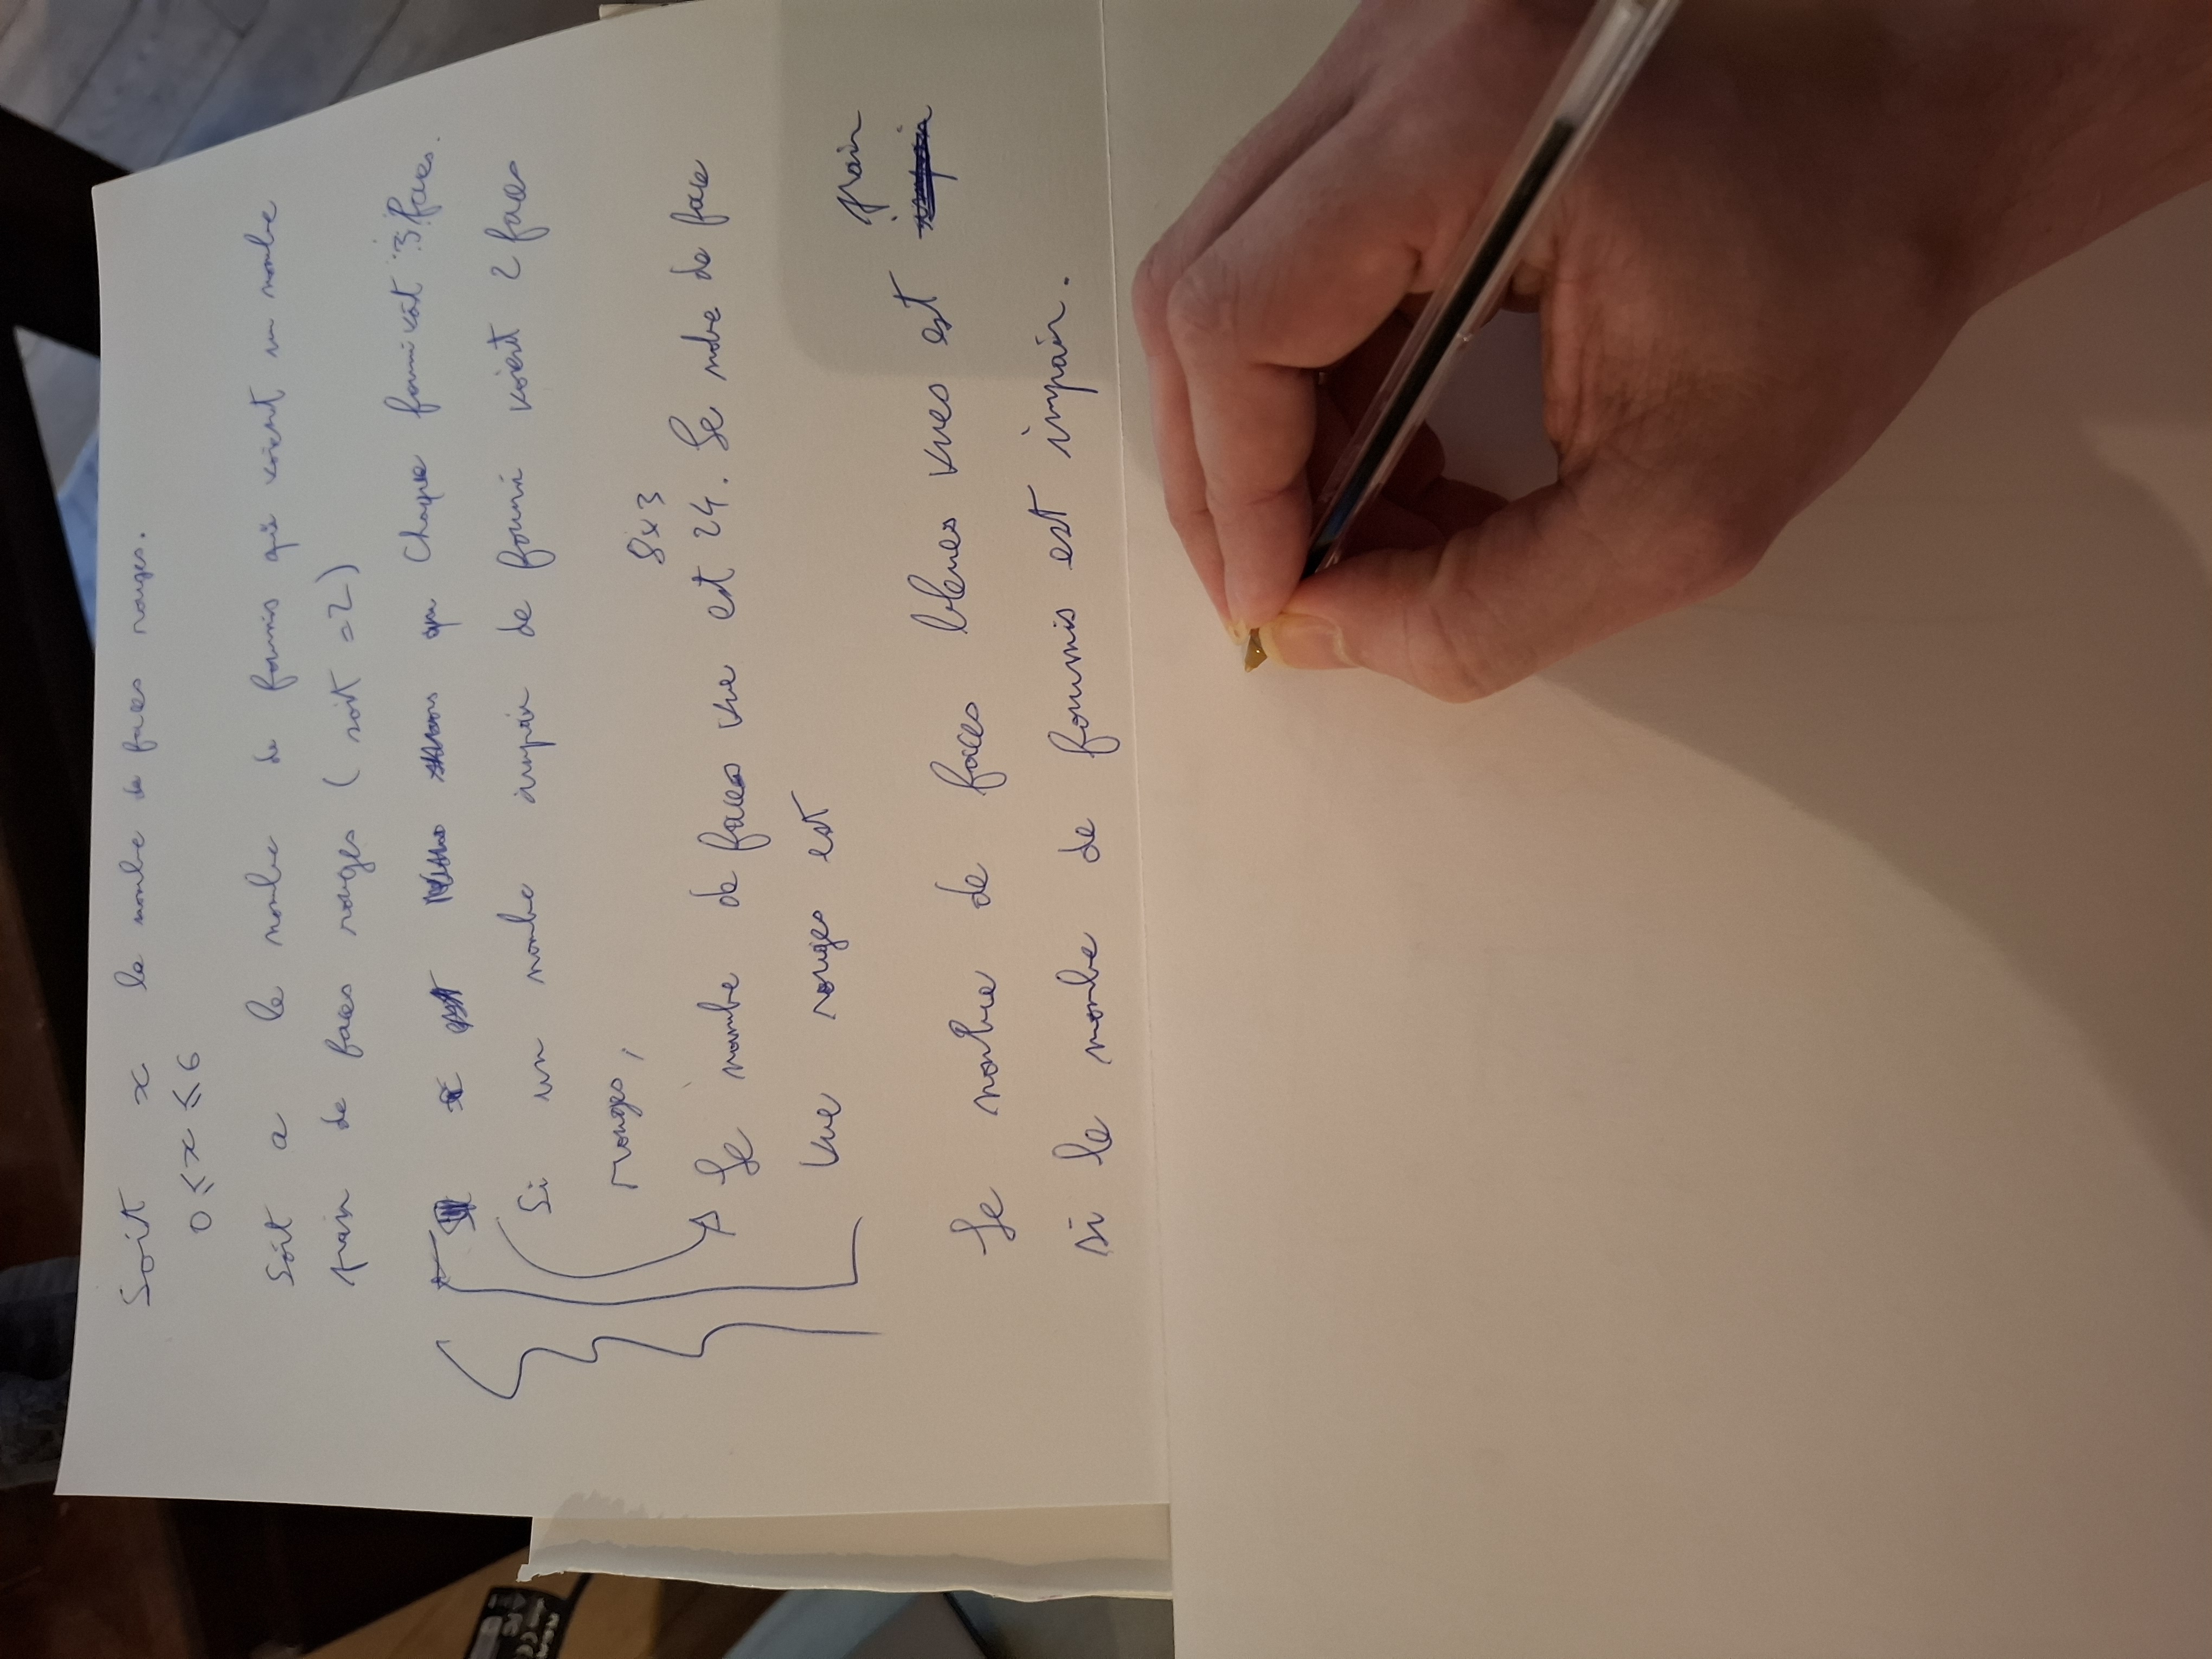 Soit x le nombre de faces rouges.
0 ⩽ x ⩽ 6
Soit a le nombre de fourmis qui voient un nombre
pair de faces rouges (soit =2)
Chaque fourmi voit 3 faces.
Si un nombre impair de fourmi voient 2 faces
rouges,
8x3
Le nombre de faces vue est 24. Le nombre de face
vue rouges est
pair
Le nombre de faces bleues vues est impair
si le nombre de fourmis est impair.